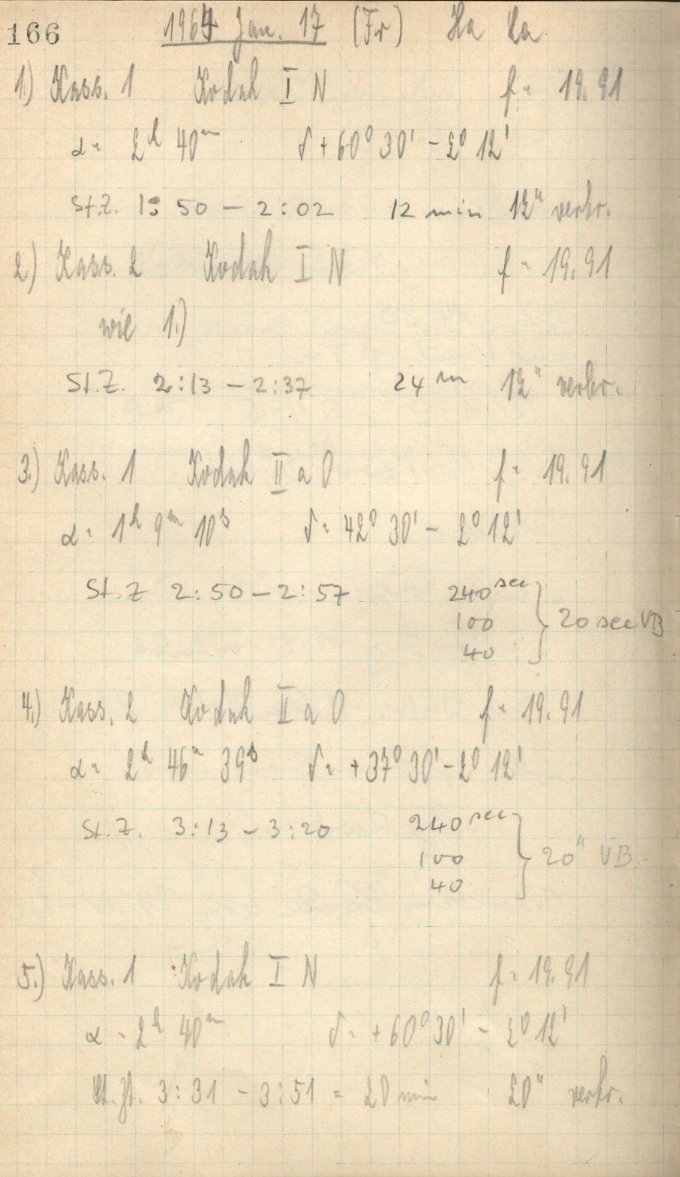 166 1964 Jan. 17 (Fr) Ha La
1.) Kass. 1 Kodak I N f = 19.91
α = 2h 40m δ + 60° 30' - 2° 12'
St.Z. 1:50 - 2:02 12 min 12" verkr.
2.) Kass. 2 Kodak I N f = 19.91
wie 1.)
St.Z. 2:13 - 2:37 24 m 12" verkr.
3.) Kass. 1 Kodak II a O f = 19.91
α = 1h 9m 10s δ = 42° 30' - 2° 12'
St.Z 2:50 - 2:57 240 sec } 20 sec VB
100
40
4.) Kass. 2 Kodak II a O f = 19.91
α = 2h 46m 39s δ = +37° 30' - 2° 12'
St.Z. 3:13 - 3:20 240 sec } 20" VB.
100
40
5.) Kass. 1 Kodak I N f = 19.91
α = 2h 40m δ = +60° 30' - 2° 12'
St.Zt. 3:31 - 3:51 = 20 min 20" verkr.